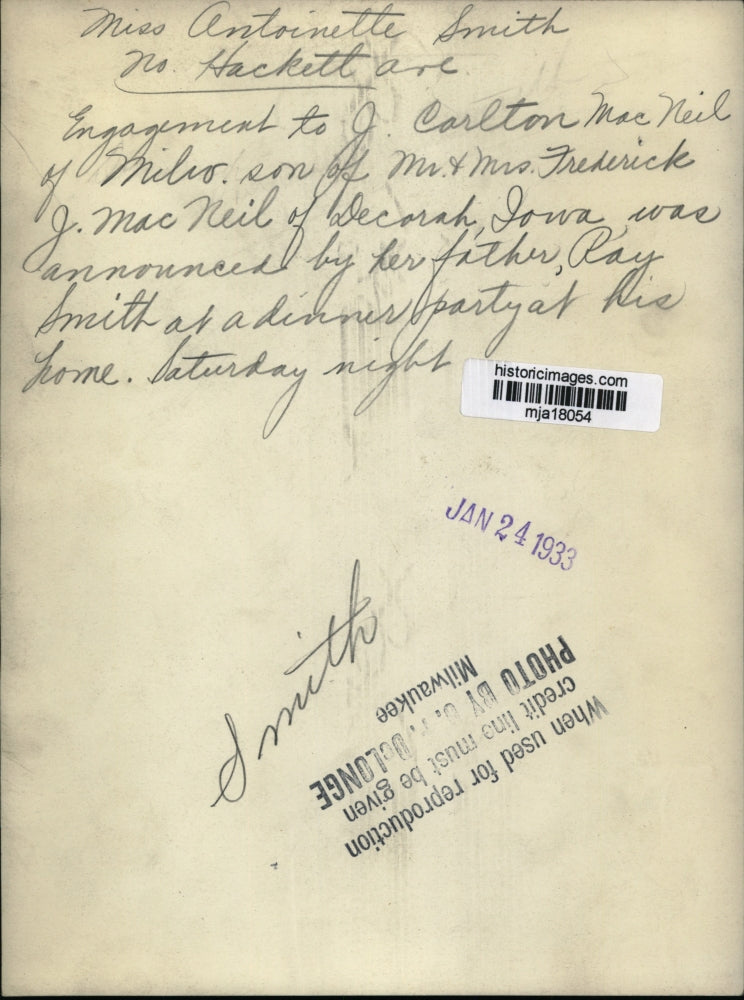 Miss Antoinette Smith
No. Hackett ave.
Engagement to J. Carlton Mac Neil
of Milw. son of Mr. & Mrs. Frederick
J. Mac Neil of Decorah, Iowa, was
announced by her father, Ray
Smith at a dinner party at his
home. Saturday night
historicimages.com
mja18054
JAN 24 1933
Smith
When used for reproduction
credit line must be given
PHOTO BY DeLONGE
Milwaukee